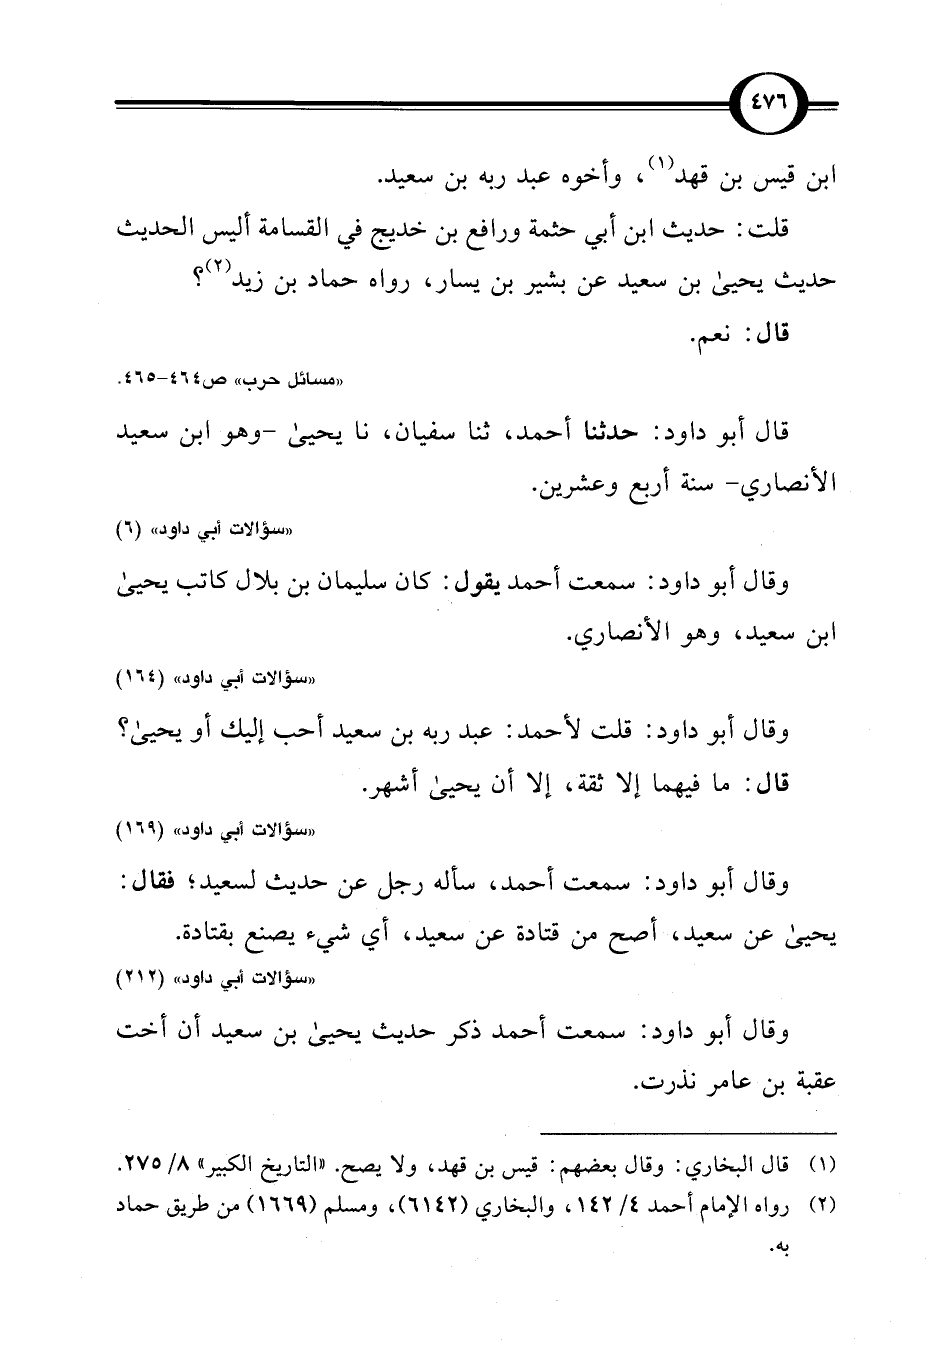 ٤٧٦
ابن قيس بن قهد(١)، وأخوه عبد ربه بن سعيد.
قلت: حديث ابن أبي حثمة ورافع بن خديج في القسامة أليس الحديث
حديث يحيىٰ بن سعيد عن بشير بن يسار، رواه حماد بن زيد(٢)؟
قال: نعم.
«مسائل حرب» ص٤٦٤-٤٦٥.
قال أبو داود: حدثنا أحمد، ثنا سفيان، نا يحيىٰ -وهو ابن سعيد
الأنصاري- سنة أربع وعشرين.
«سؤالات أبي داود» (٦)
وقال أبو داود: سمعت أحمد يقول: كان سليمان بن بلال كاتب يحيىٰ
ابن سعيد، وهو الأنصاري.
«سؤالات أبي داود» (١٦٤)
وقال أبو داود: قلت لأحمد: عبد ربه بن سعيد أحب إليك أو يحيىٰ؟
قال: ما فيهما إلا ثقة، إلا أن يحيىٰ أشهر.
«سؤالات أبي داود» (١٦٩)
وقال أبو داود: سمعت أحمد، سأله رجل عن حديث لسعيد؛ فقال:
يحيىٰ عن سعيد، أصح من قتادة عن سعيد، أي شيء يصنع بقتادة.
«سؤالات أبي داود» (٢١٢)
وقال أبو داود: سمعت أحمد ذكر حديث يحيىٰ بن سعيد أن أخت
عقبة بن عامر نذرت.
(١) قال البخاري: وقال بعضهم: قيس بن قهد، ولا يصح. «التاريخ الكبير» ٨/ ٢٧٥.
(٢) رواه الإمام أحمد ٤/ ١٤٢، والبخاري (٦١٤٢)، ومسلم (١٦٦٩) من طريق حماد
به.